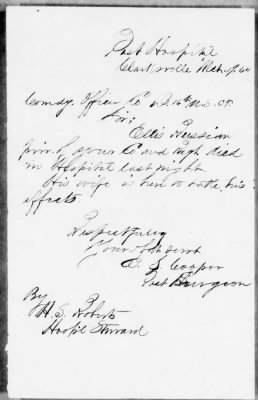 Post Hospital
Clarksville Mch 19. 64
Comdg Officer Co 16th
Sir;
Ellis
priv. of your Co and Regt died
in Hospital last night.
His wife is here to take his
effects.
Respectfully
Your Obt Servt
Cooper
Post Surgeon
By
H. S. Roberts
Hosp'l Steward